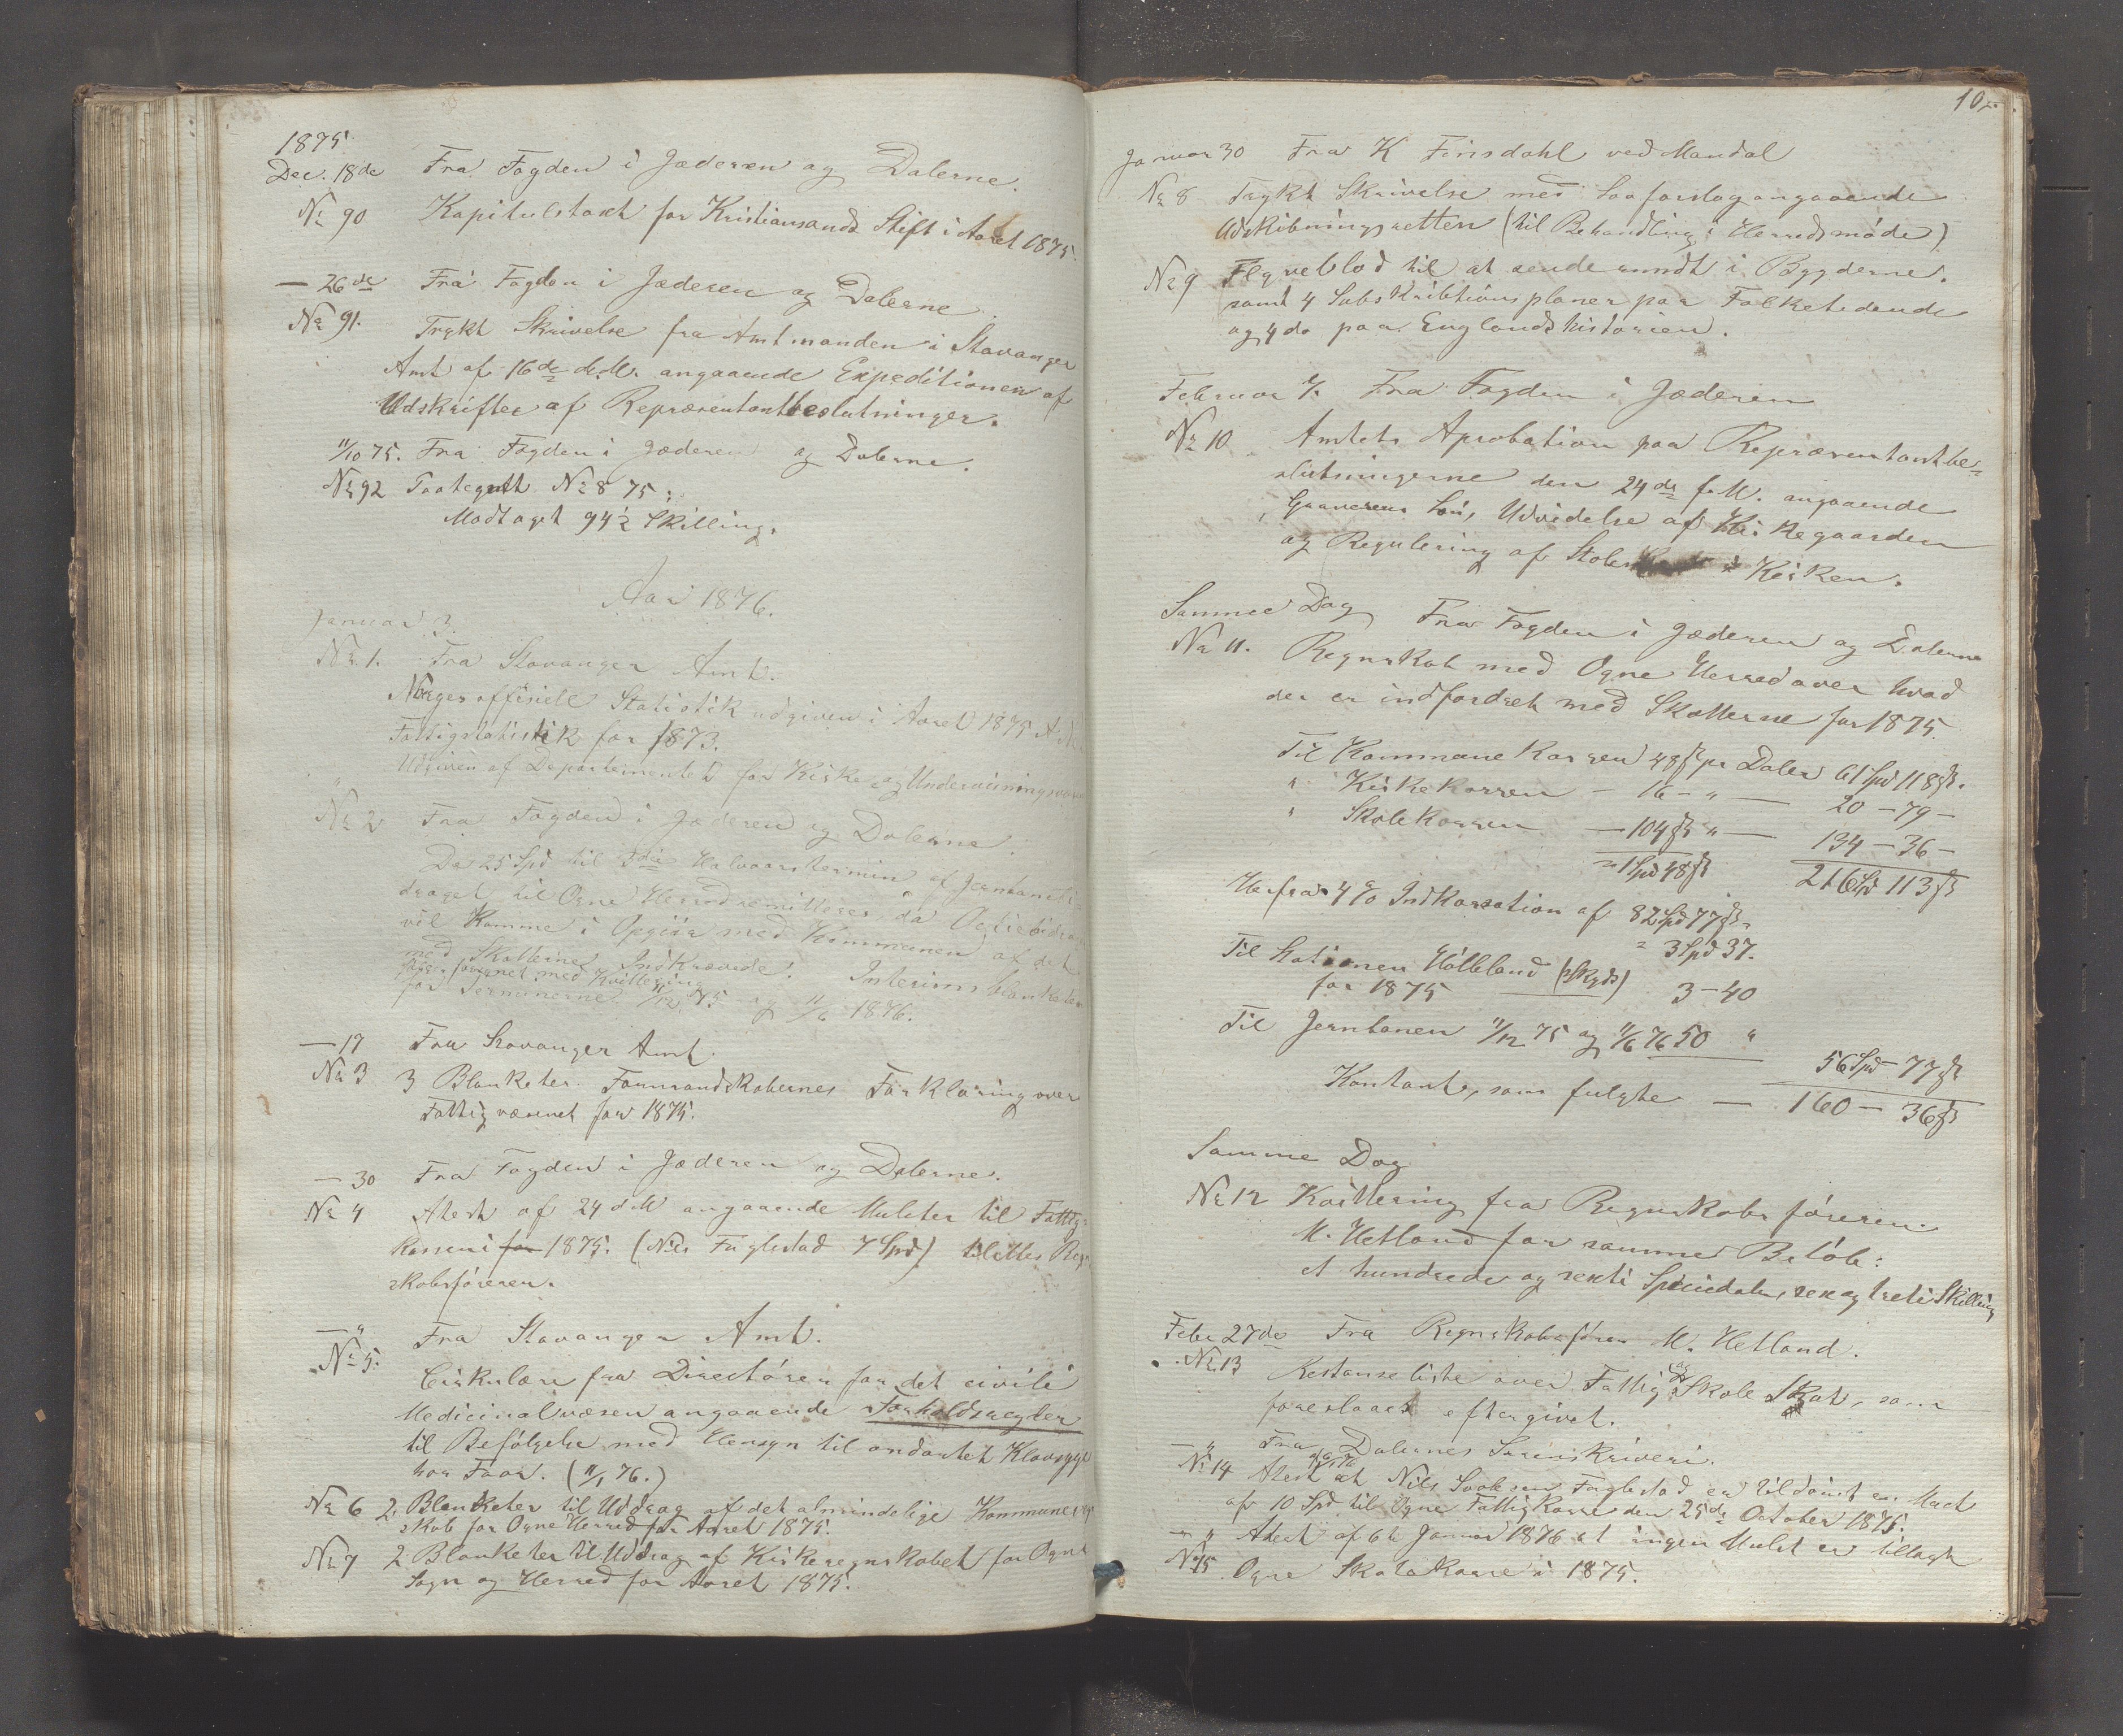 1875
Dec. 18de Fra Fogden i Jæderen og Dalerne.
No 90 Kapitulstaxt for Kristiansands Stift i Aaret 1875.
— 26de Fra Fogden i Jæderen og Dalerne.
No 91. Trykt Skrivelse fra Amtmanden i Stavanger
Amt af 16de d.M. angaaende Expeditionen af
Udskrifter af Repræsentantbeslutninger.
11/10 75. Fra Fogden i Jæderen og Dalerne.
No 92 No 8 75:
Modtaget 94½ Skilling.
Aar 1876.
Januar 3.
No 1. Fra Stavanger Amt.
Norges officielle Statistik udgiven i Aaret 1875
Fattigstatistik for 1873.
Udgiven af Departementet for Kirke- og Undervisningsvæ
No 2 Fra Fogden i Jæderen og Dalerne.
De 25 Spd til Halvaarstermin af
draget til Ogne Herred remitteres, da
vil komme i Opgjør med Kommunen af det
med Skatterne Indkrævede. Interimsblanketen
forsynet med Kvittering
for Terminerne 11/12 75 og 11/6 1876.
— 17 Fra Stavanger Amt.
No 3 3 Blanketer Formandskabernes Forklaring over
Fattigvæsenet for 1875.
— 30 Fra Fogden i Jæderen og Dalerne.
No 4 Atest af 24 d.M angaaende Mulcter til Fattig-
kassen i for 1875. (Nils Fuglestad 7 Spd) tilstilles Reg
skabsføreren.
— " Fra Stavanger Amt.
No 5. Cirkulære fra Directøren for det civile
Medicinalvæsen angaaende Forholdsregler
til Befølgelse med Hensyn til ondartet Klovsyge
hos Faar. (11/1 76.)
No 6 2 Blanketer til Uddrag af det almindelige Kommunereg
skab for Ogne Herred for Aaret 1875.
No 7 2 Blanketer til Uddrag af Kirkeregnskabet for Ogne
Sogn og Herred for Aaret 1875.
10
Januar 30 Fra K Finsdahl ved Mandal
No 8 Trykt Skrivelse med Lovforslag angaaende
Udskibningsretten (til Behandling i Herredsmøde)
No 9 Flyveblad til at sende rundt i Bygderne.
samt 4 Subskribtionsplaner paa Folketidende
og 4 do paa Englandshistorien.
Februar Fra Fogden i Jæderen
No 10. Amtets Aprobation paa Repræsentantbe-
slutningerne den 24de f.M. angaaende
Graverens Løn, Udvidelse af Kirkegaarden
og Regulering af i Kirken.
Samme Dag Fra Fogden i Jæderen og Dalerne
No 11. Regnskab med Ogne Herred over hvad
der er indfordret med Skatterne for 1875.
Til Kommunekassen 48 ß pr Daler 61 Spd 118 ß.
" Kirkekassen — 16 — " — 20 — 79 —
" Skolekassen — 104 ß " — 134 — 36 —
= 1 Spd 48 ß 216 Spd 113 ß
Herfra 4 % Indkassation af 82 Spd 77 ß
= 3 Spd 37.
Til Stationen Hølleland (Skyds)
for 1875 3 — 40
Til Jernbanen 11/12 75 og 11/6 76 50 "
56 Spd 77 ß
Kontant, som fulgte — 160 — 36 ß
Samme Dag
No 12 Kvittering fra Regnskabsføreren
M. Hetland for samme Beløb:
et hundrede og sexti Speciedaler, sex og treti Skilling
Febr 27de Fra Regnskabsfører M. Hetland.
No 13 Restanseliste over Fattig og Skole Skat, som
foreslaaes eftergivet.
— " Fra Dalernes Sorenskriveri.
No 14 Atest at Nils Fuglestad er tildømt en Mulct
af 10 Spd til Ogne Fattigkasse den 25de October 1875.
— " Atest af 6te Januar 1876 at ingen Mulct er tillagt
No 15 Ogne Skolekasse i 1875.